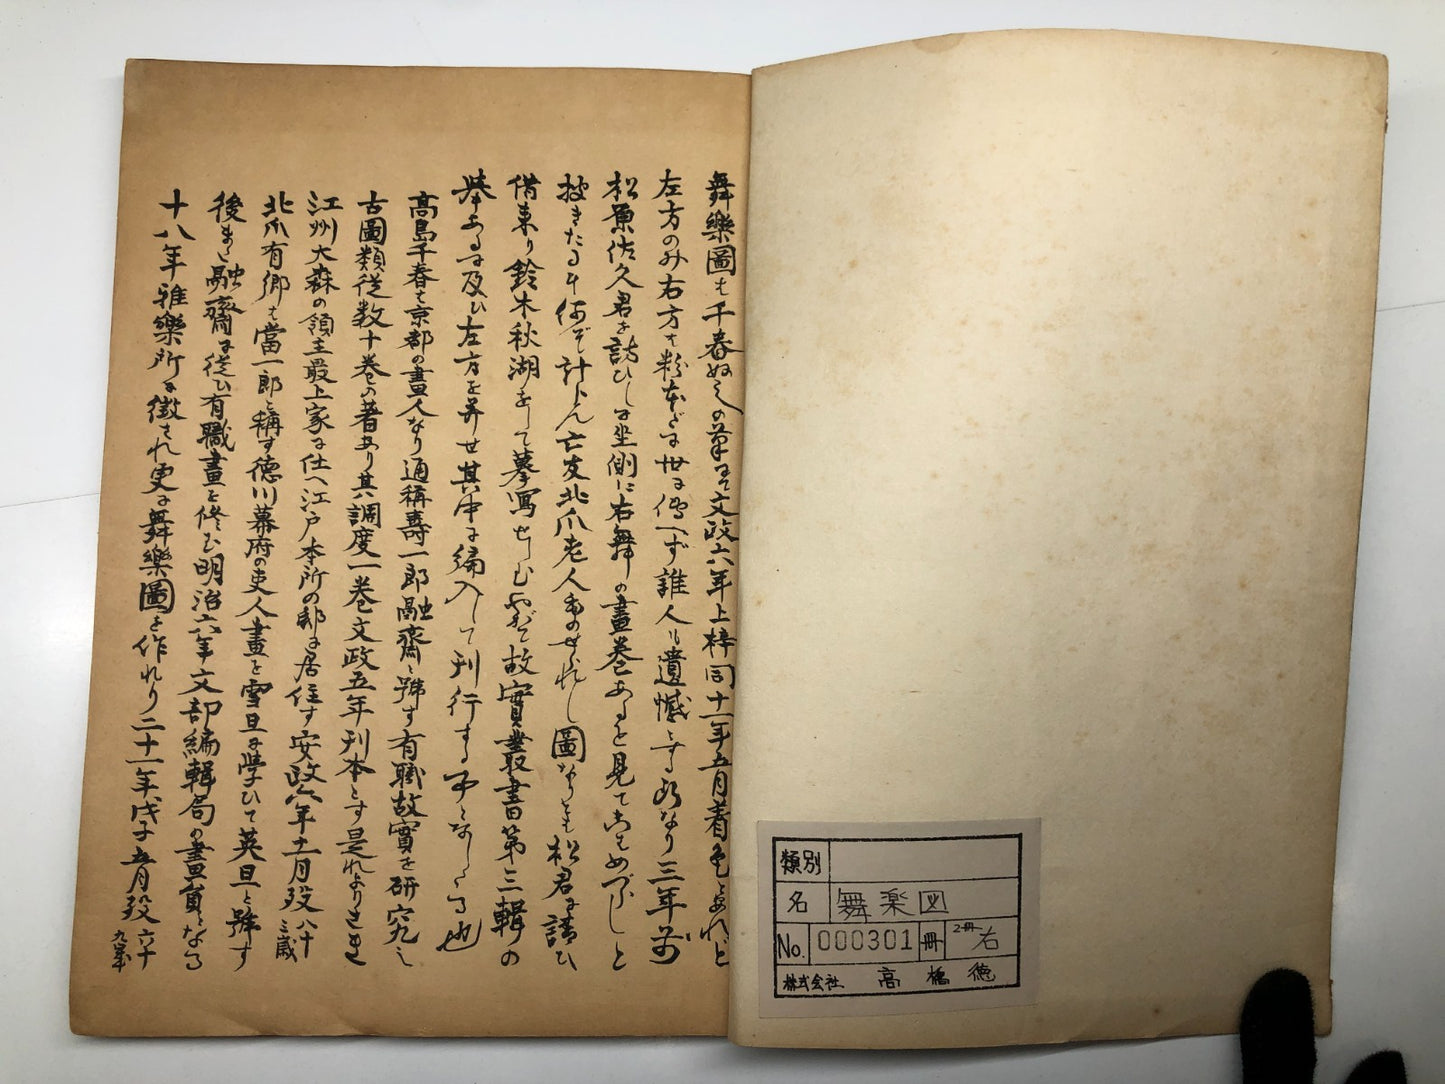 舞樂圖は千春ぬしの筆にて文政六年上梓同十一年五月着色とあれど
左方のみ右方は粉本だに世に傳へず誰人も遺憾とする所なり三年前
松原佐久君を訪ひしに坐側に右舞の畫卷あるを見てこはめづらしと
披きたるに何ぞ計らん亡友北爪老人の圖なりとも松君に請ひ
借來り鈴木秋湖をして摹写せしむ故實叢書第三輯の
擧あるに及ひ左方を并せ其中に編入して刊行する也
高島千春は京都の畫人なり通稱壽一郎融齋と號す有職故實を研究し
古圖類從数十卷の著あり其調度一卷文政五年刊本とす是れよりさき
江州大森の領主最上家に仕へ江戸本所の邸に居住す安政六年十一月歿八十三歳
北爪有郷は當一郎と稱す徳川幕府の吏人畫を雪旦に學ひて英旦と號す
後また融齋に從ひ有職畫を修む明治六年文部編輯局の畫員となる
十八年雅樂所に徴され更に舞樂圖を作れり二十一年戊子五月歿六十九年
類別
名 舞楽図
No. 000301 冊 2冊 右
株式会社 高橋徳